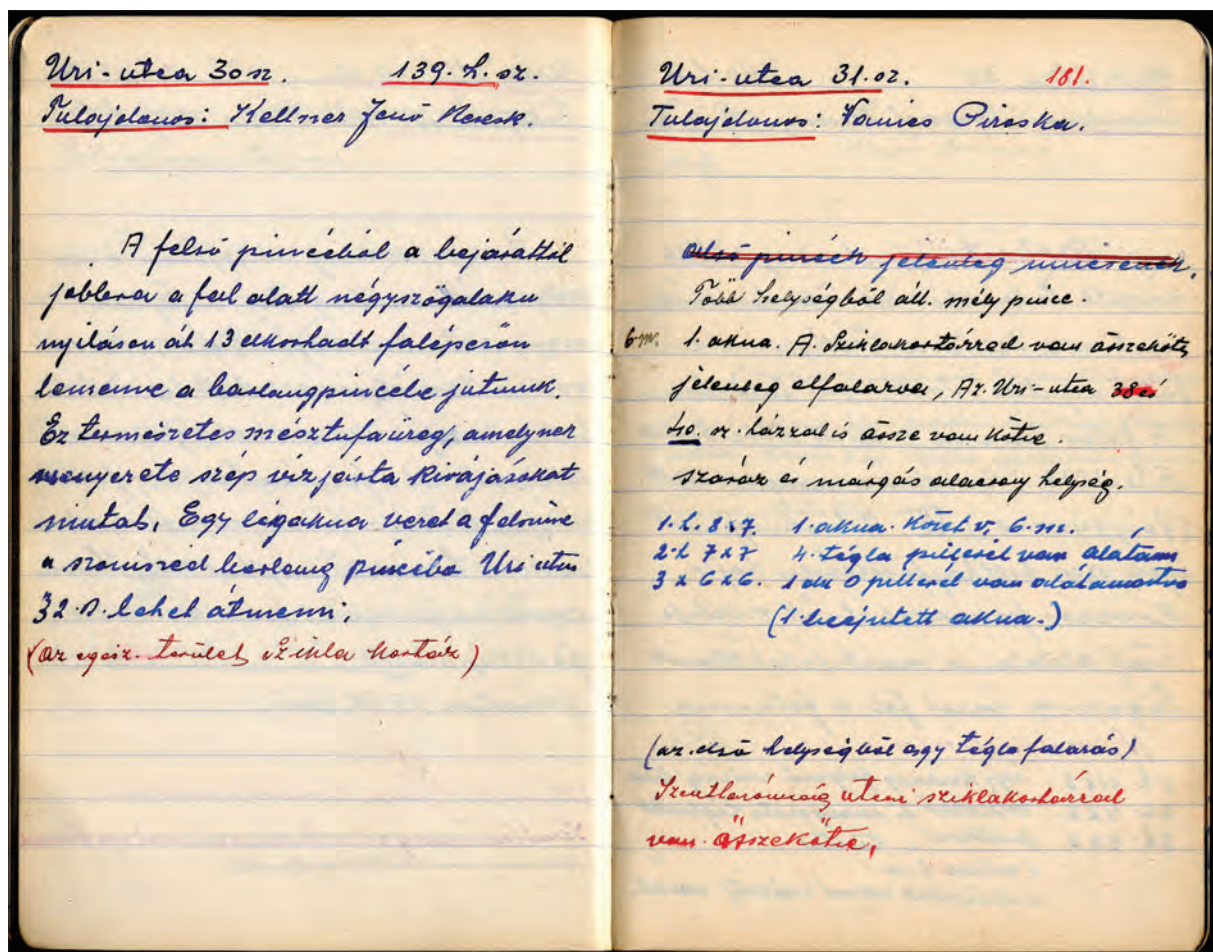 Uri-utca 30 sz. 139. h. sz.
Tulajdonos: Kellner Jenő Keresk.
A felső pincéből a bejárattól
jobbra a fal alatt négyszögalaku
nyiláson át 13 elkorhadt falépcsőn
lemenve a barlangpincébe jutunk.
Ez természetes mésztufaüreg, amelynek
menyezete szép vizjárta kivájásokat
mutat. Egy légakna vezet a felszinre
a szomszéd barlang pincébe Uri utca
32. sz. lehet átmenni.
(az egész terület Szikla kórház)
Uri-utca 31. sz. 181.
Tulajdonos: Piroska.
alsó pincék jelenleg nincsenek.
Több helységből áll. mély pince.
6 m. 1. akna. A. Sziklakórházzal van összekötve
jelenleg elfalazva, Az. Uri-utca 38 és
40. sz. házzal is össze van kötve.
száraz és márgás alacsony helység.
1. h. 8 x 7. 1. akna. Köret v. 6. m.
2. h 7 x 7 4. tégla pillérel van alátám
3 x 6 x 6. 1 db O pillérel van alátámasztva
(1. beépitett akna.)
(az első helységből egy tégla falazás)
Szentháromság utcai sziklakórházzal
van összekötve,